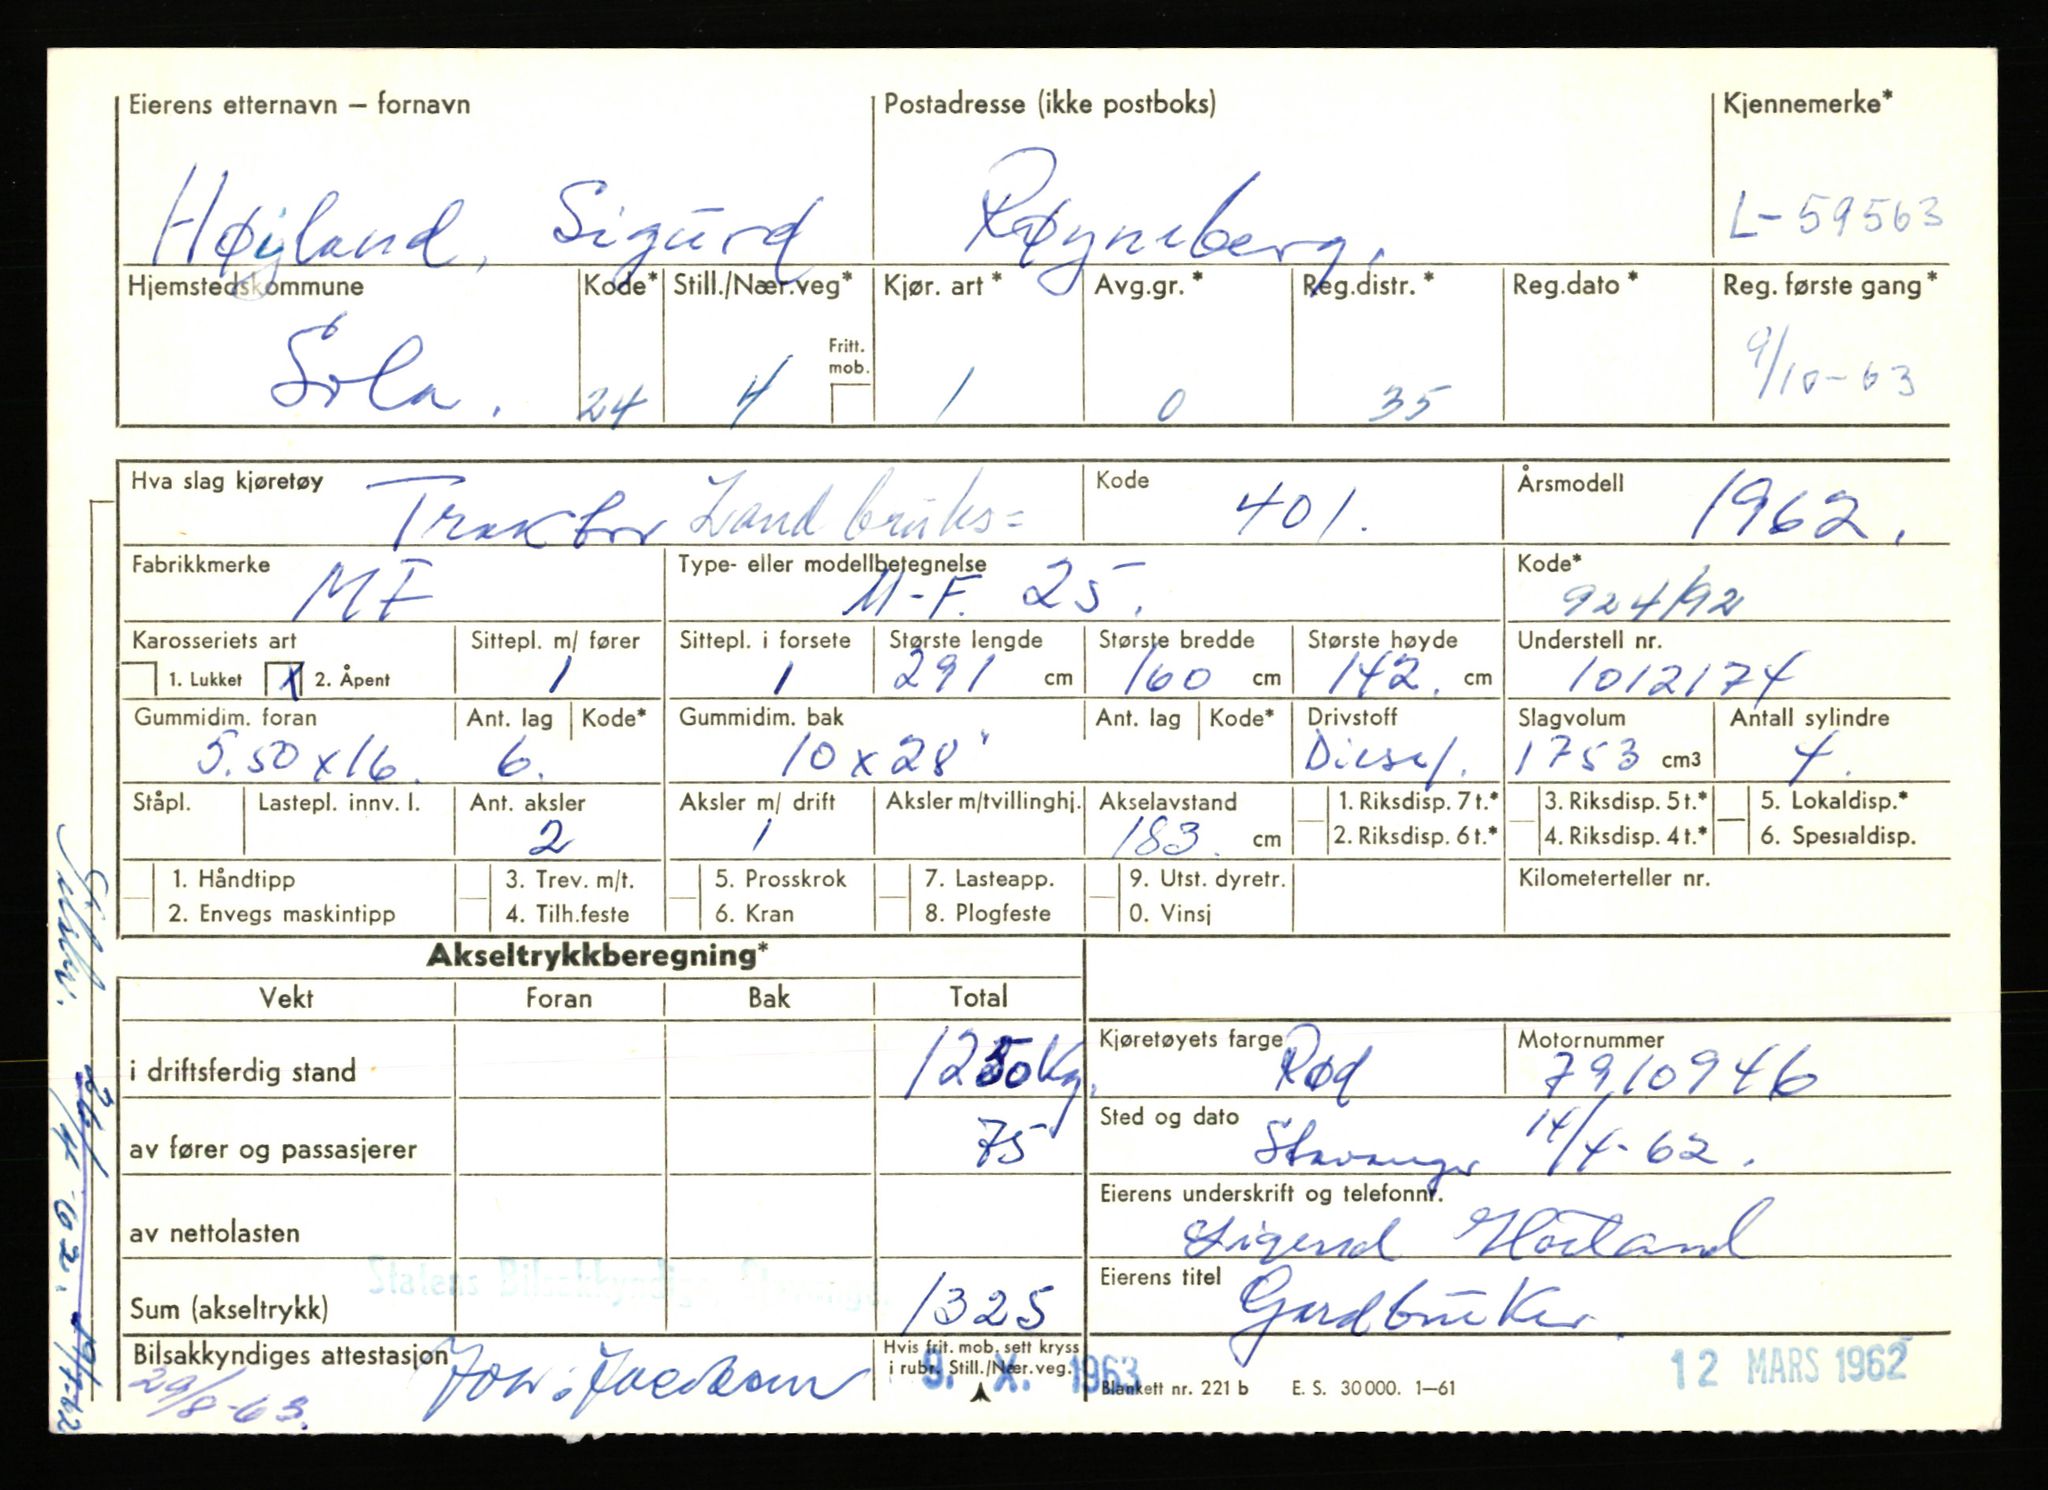 Eierens etternavn – fornavn Postadresse (ikke postboks) Kjennemerke*
Høyland, Sigurd Røyneberg. L-59563
Hjemstedskommune Kode* Still./Nær.veg* Kjør. art* Avg.gr.* Reg.distr.* Reg.dato* Reg. første gang*
Fritt. mob.
Sola. 24 4 1 0 35 9/10-63
Hva slag kjøretøy Traktor Landbruks= Kode 401. Årsmodell 1962.
Fabrikkmerke Type- eller modellbetegnelse Kode*
MF M-F. 25. 924/92
Karosseriets art Sittepl. m/ fører Sittepl. i forsete Største lengde Største bredde Største høyde Understell nr.
1. Lukket X 2. Åpent 1 1 291 cm 160 cm 142. cm 1012174
Gummidim. foran Ant. lag Kode* Gummidim. bak Ant. lag Kode* Drivstoff Slagvolum Antall sylindre
5.50 x 16. 6. 10 x 28" Diesel. 1753 cm3 4.
Ståpl. Lastepl. innv. l. Ant. aksler Aksler m/ drift Aksler m/tvillinghj. Akselavstand 1. Riksdisp. 7 t.* 3. Riksdisp. 5 t.* 5. Lokaldisp.*
2 1 183. cm 2. Riksdisp. 6 t.* 4. Riksdisp. 4 t.* 6. Spesialdisp.
1. Håndtipp 3. Trev. m/t. 5. Prosskrok 7. Lasteapp. 9. Utst. dyretr. Kilometerteller nr.
2. Envegs maskintipp 4. Tilh.feste 6. Kran 8. Plogfeste 0. Vinsj
Akseltrykkberegning*
Vekt Foran Bak Total
i driftsferdig stand 1250 Kg.
Kjøretøyets farge Rød Motornummer 7910946
av fører og passasjerer 75
Sted og dato Stavanger 14/4-62.
av nettolasten
Eierens underskrift og telefonnr.
Sigurd Höiland
Statens Bilsakkyndige, Stavanger
Sum (akseltrykk) 1325
Eierens titel Gardbruker.
Bilsakkyndiges attestasjon
29/8-63.
Hvis frit. mob. sett kryss
i rubr. Still./Nær.veg.
9. X. 1963
12 MARS 1962
Blankett nr. 221 b E. S. 30 000. 1–61